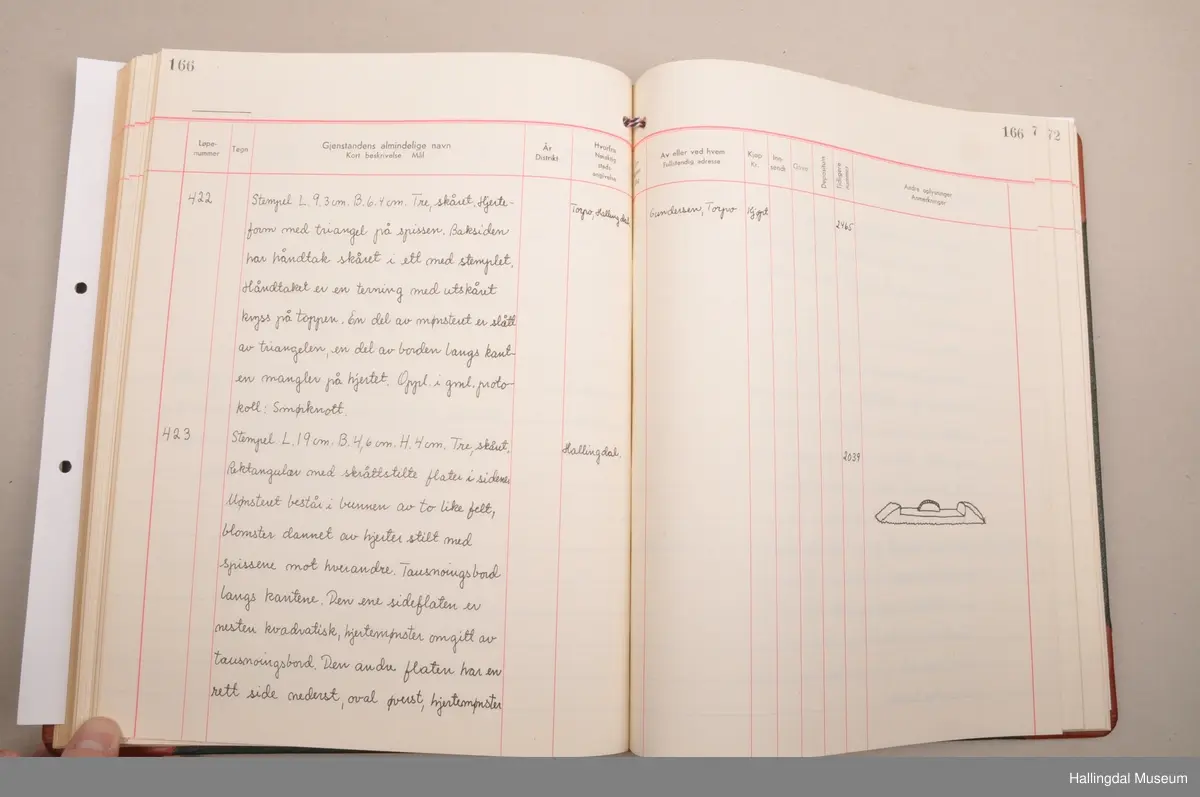 166
Løpe-
nummer
Tegn
Gjenstandens almindelige navn
Kort beskrivelse Mål
År
Distrikt
Hvorfra
Nøiaktig
steds
angivelse
422
Stempel L. 9,3 cm. B. 6,4 cm. Tre, skåret. Hjerte-
form med triangel på spissen. Baksiden
har håndtak skåret i ett med stemplet.
Håndtaket er en terning med utskåret
kryss på toppen. En del av mønsteret er slått
av triangelen, en del av borden langs kant-
en mangler på hjertet. Oppl. i gml. proto-
koll: Smørknott.
Torpo, Hallingdal
423
Stempel L. 19 cm. B. 4,6 cm. H. 4 cm. Tre, skåret.
Rektangulær med skråttstilte flater i sidene.
Mønsteret består i bunnen av to like felt,
blomster dannet av hjerter stilt med
spissene mot hverandre. Tausnoingsbord
langs kantene. Den ene sideflaten er
nesten kvadratisk, hjertemønster omgitt av
tausnoingsbord. Den andre flaten har en
rett side nederst, oval øverst, hjertemønster
Hallingdal.
166 7 72
Av eller ved hvem
Fullstendig adresse
Kjøp
Kr.
Inn-
sendt
Gave
Depositum
Tidligere
nummer
Andre oplysninger
Anmerkninger
Gundersen, Torpo Kjøpt 2465
2039
Hallingdal Museum